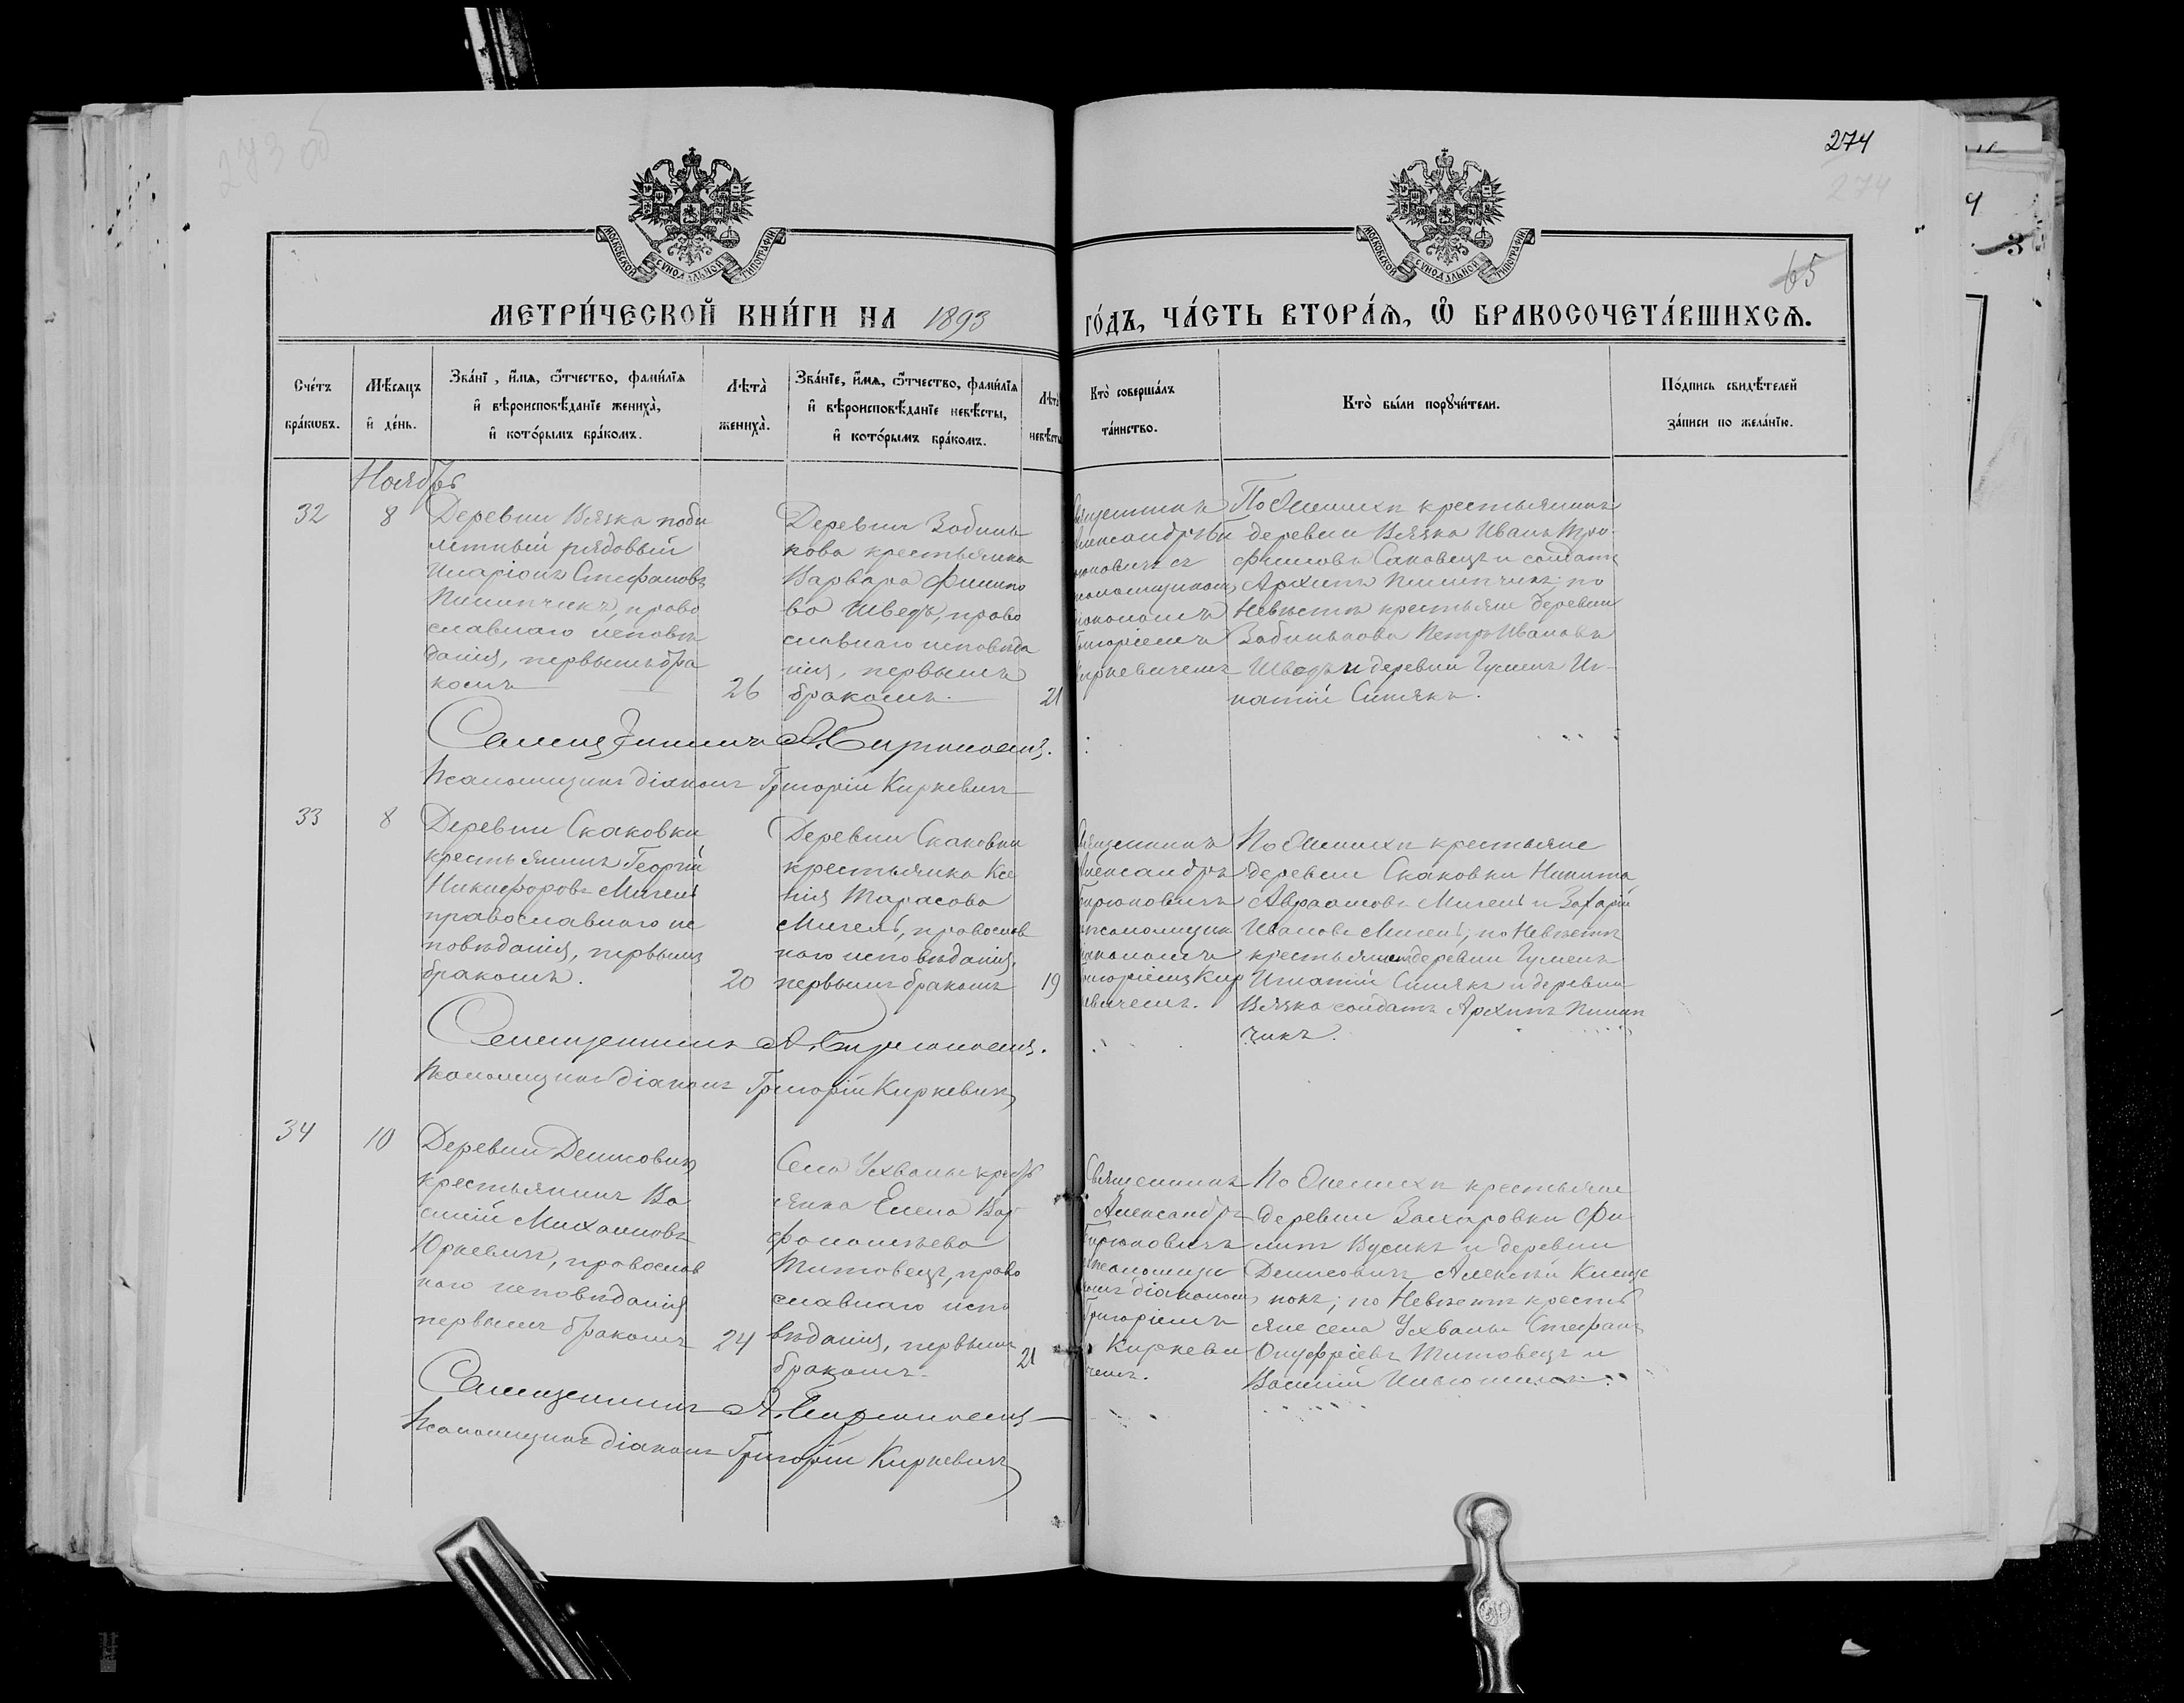 273 об
274
274
65
МОСКОВСКОЙ СѴНОДАЛЬНОЙ ТИПОГРАФІИ
МОСКОВСКОЙ СѴНОДАЛЬНОЙ ТИПОГРАФІИ
МЕТРИ́ЧЕСКОЙ КНИ́ГИ НА 1893
ГО́ДЪ, ЧА́СТЬ ВТОРА́Ѧ, Ѽ БРАКОСОЧЕТА́ВШИХСѦ.
Сче́тъ
бра́кѡвъ.
Мѣ́сяцъ
и҆ де́нь.
Зва́нї , и҆́мѧ, ѻ҆́тчество, фами́лїѧ
и҆ вѣроисповѣ́данїе жениха̀,
и҆ кото́рымъ бра́комъ.
Лѣта̀
жениха̀.
Зва́нїе, и҆́мѧ, ѻ҆́тчество, фами́лїѧ
и҆ вѣроисповѣ́данїе невѣ́сты,
и҆ кото́рымъ бра́комъ.
Лѣта
невѣсты
Кто̀ соверша́лъ
та́инство.
Кто̀ бы́ли порꙋчи́тели.
По́дпись свидѣ́телей
за́писи по жела́нїю.
Ноябрь
32
8
Деревни Вязка
рядовый
Иларіонъ Стефановъ
Пилипчикъ, право
славнаго исповѣ
данія, первымъ бра
комъ
26
Деревни
кова крестьянка
Варвара Филипо
ва Шведъ, право
славнаго исповѣда
нія, первымъ
бракомъ.
21
Священникъ
Александръ Би
рюковичъ съ
псаломщикомъ
діакономъ
Григоріемъ
Киркевичемъ
По Женихѣ крестьянинъ
деревни Вязка Иванъ Тро
фимовъ Саковецъ и солдатъ
Архипъ Пилипчикъ; по
Невѣстѣ крестьяне деревни
Петръ Ивановъ
Шведъ и деревни Гуменъ Иг
натій Симякъ.
Священникъ А. Бирюковичъ.
Псаломщикъ діаконъ Григорій Киркевичъ
33
8
Деревни Скаковки
крестьянинъ Георгій
Никифоровъ Мигель
православнаго ис
повѣданія, первымъ
бракомъ.
20
Деревни Скаковки
крестьянка Ксе
нія Тарасова
Мигель, православ
наго исповѣданія,
первымъ бракомъ
19
Священникъ
Александръ
Бирюковичъ
съ псаломщик
діакономъ
Григоріемъ Кир
кевичемъ.
По Женихѣ крестьяне
деревни Скаковки Никита
Авраамовъ Мигель и Захарій
Ивановъ Мигель; по Невѣстѣ
деревни Гуменъ
Игнатій Симякъ и деревни
Вязка солдатъ Архипъ Пилип
чикъ.
Священникъ А. Бирюковичъ.
Псаломщикъ діаконъ Григорій Киркевичъ
34
10
Деревни Денисовичъ
крестьянинъ Ва
силій Михаиловъ
Юркевичъ, православ
наго исповѣданія
первымъ бракомъ
24
Села Ухвалы кресть
янка Елена Вар
фоломѣева
Титовецъ, право
славнаго испо
вѣданія, первымъ
бракомъ.
21
Священникъ
Александръ
Бирюковичъ
съ псаломщи
комъ діакономъ
Григоріемъ
Киркеви
чемъ.
По Женихѣ крестьяне
деревни Захаровки Фи
липъ Бусикъ и деревни
Денисовичъ Алексѣй
покъ; по Невѣстѣ кресть
яне села Ухвалы Стефанъ
Онуфріевъ Титовецъ и
Василій
Священникъ А. Бирюковичъ
Псаломщикъ діаконъ Григорій Киркевичъ